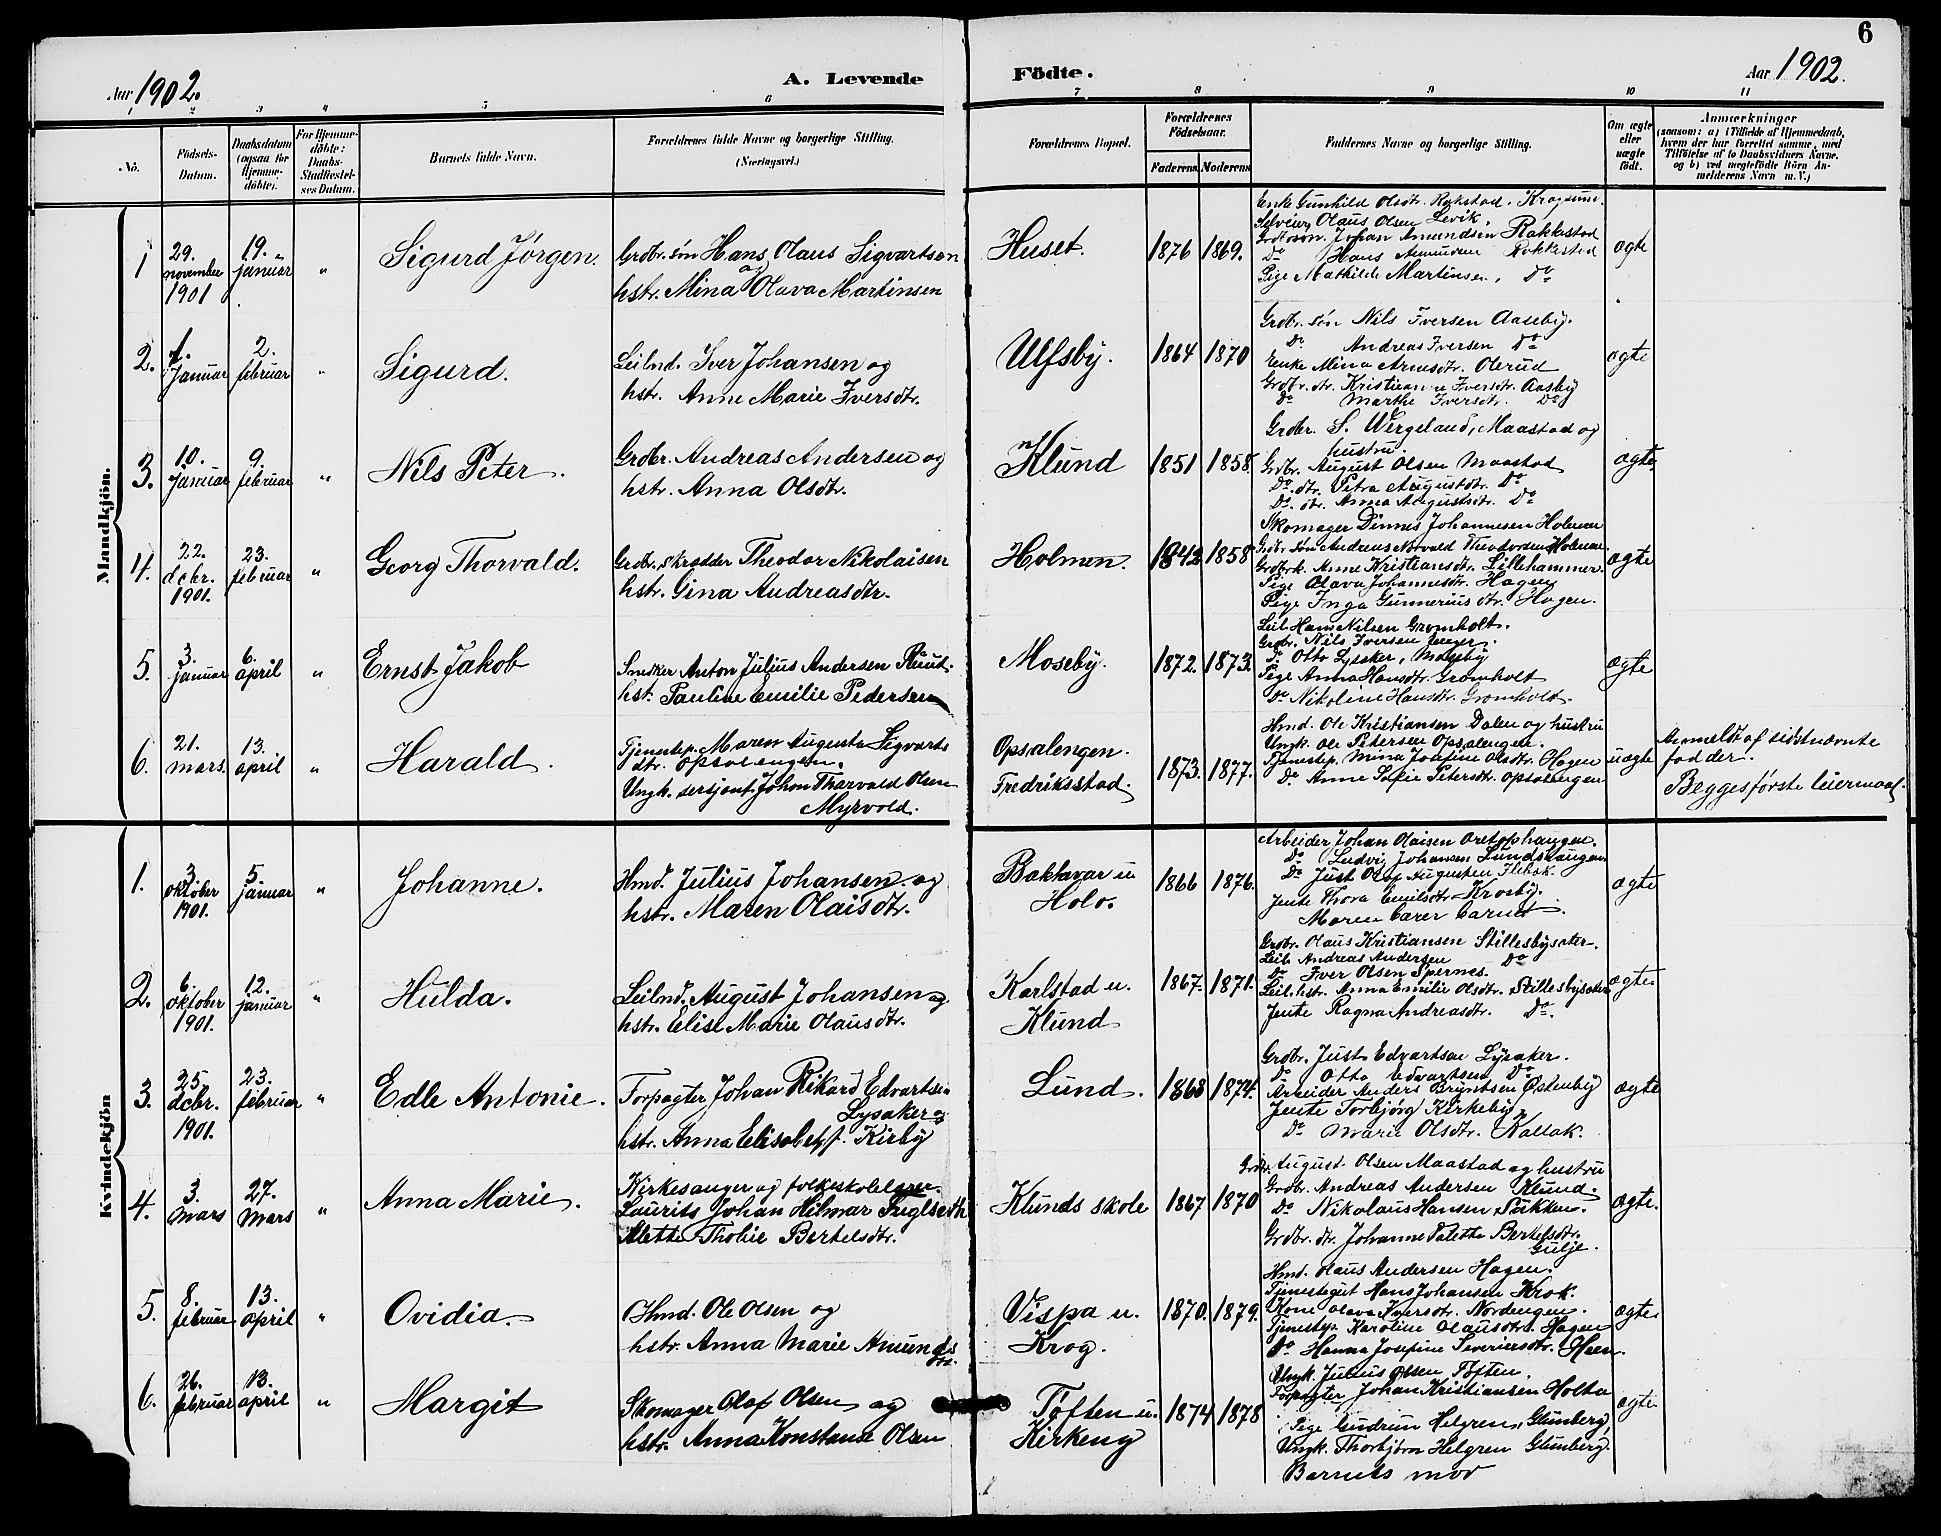 6
Aar 1902.
A. Levende
Födte.
Aar 1902.
1 2 3 4 5 6 7 8 9 10 11
No.
Födsels-
Datum.
Daabsdatum
(ogsaa for
Hjemme-
döbte).
For Hjemme-
döbte:
Daabs-
Stadfæstel-
ses Datum.
Barnets fulde Navn.
Forældrenes fulde Navne og borgerlige Stilling.
(Næringsvei.)
Forældrenes Bopæl.
Forældrenes
Födselsaar.
Faderens.
Moderens
Faddernes Navne og borgerlige Stilling.
Om ægte
eller
uægte
født.
Anmærkninger
(saasom: a) i Tilfælde af Hjemmedaab,
hvem der har forrettet samme, med
Tilföielse af to Daabsvidners Navne,
og b) ved uægtefödte Börn An-
melderens Navn m. V.)
Mandkjön.
1
29.
november
1901
19. "
januar
"
Sigurd Jørgen.
Grdbr. søn Hans Olaus Sigvartsen
og
hstr. Mina Olava Martinsen
Huset.
1876
1869.
Enke Gunhild Olsdtr. Rakstad, Krogsund.
Selveier Olaus Olsen Levik.
Grdbrsøn. Johan Amundsen Rakkestad
Do Hans Amundsen Rakkestad
Pige Mathilde Martinsen, Do
ægte
2.
1.
januar
2.
februar
"
Sigurd.
Leilnd. Iver Johansen og
hstr. Anne Marie Iversdtr.
Ulfsby.
1864
1870
Grdbr. søn Nils Iversen Aaseby.
Do Andreas Iversen Do
Enke Mina Arnesdtr. Olerud
Grdbr. dtr. Kristianne Iversdtr. Aasby
Do Marthe Iversdtr. Do
ægte
3.
10.
januar
9.
februar
"
Nils Peter.
Grdbr. Andreas Andersen og
hstr. Anna Olsdtr.
Klund
1851
1858.
Grdbr. S. Wergeland, Maastad og
hustru.
Grdbr. August Olsen Maastad
Do. dtr. Petra Augustdtr. Do
Do. dtr. Anna Augustsdtr. Do
ægte
4.
22.
dcbr.
1901.
23.
februar
"
Georg Thorvald.
Grdbr. skrædder Theodor Nikolaisen
hstr. Gina Andreasdtr.
Holmen.
1842
1858
Skomager Dinnes Johannesen Holmen
Grdbr søn Andreas Norvald Theodorsen Holmen.
Grdbrk. Anne Kristiansdtr. Lillehammer.
Pige Olava Johannesdtr. Hagen
Pige Inga Gunnerius dtr. Hagen.
ægte
5.
3.
januar
6.
april
"
Ernst Jakob
Snedker Anton Julius Andersen Ruut.
hst. Pauline Emilie Pedersen
Moseby.
1872.
1873.
Leil. Hans Nilsen Gromholt.
Grdbr. Nils Iversen
Otto Lysaker, Moseby
Pige Anna Hansdtr. Gromholt
Do Nikoline Hansdtr. Gromholt.
ægte
6.
21.
mars.
13.
april
"
Harald.
Tjenestep. Maren Augusta Sigvarts
dtr. Opsalengen.
Ungk. sersjant Johan Thorvald Olsen
Myrvold.
Opsalengen.
Fredriksstad.
1873.
1877.
Hmd. Ole Kristiansen Dalen og hustru
Ungk. Ole Petersen Opsalengen.
Tjenestep. Mina Josefine Olsdtr. Hagen
Do Anne Sofie Petersdtr. Opsalengen
uægte
Anmeldt af sidstnævnte
fadder.
Begges første leiermaal.
Kvindekjön
1.
3.
oktober
1901.
5.
januar
"
Johanne.
Hmd. Julius Johansen. og
hstr. Maren Olaisdtr.
Bakkavar u
Holo.
1866
1876.
Arbeider Johan Olaisen
Do Ludvig Johansen Lundshaugen
Do Just Olaf Augusten
Jente Thora Emilsdtr. Krosby.
Maren
ægte
2.
6.
oktober
1901.
12.
januar
"
Hulda.
Leilnd. August Johansen og
hstr. Elise Marie Olausdtr.
Karlstad u.
Klund
1867.
1871.
Grdbr. Olaus Kristiansen Stillesbysæter.
Leil. Andreas Andersen Do
Do Iver Olsen Spernes.
Leil. hstr. Anna Emilie Olsdtr. Stillesbysæter
Jente Ragna Andreasdtr. Do.
ægte
3.
25.
dcbr.
1901.
23.
februar
"
Edle Antonie.
Forpagter Johan Rikard Edvartsen
Lysaker og
hstr. Anna Elisabet f. Kirby
Lund.
1868
1874.
Grdbr. Just Edvartsen Lysaker.
Do Otto Edvartsen Do
Arbeider Anders Bryntsen Østenby
Jente Torbjørg Kirkeby
Do Marie Olsdtr. Kallak.
ægte
4.
3.
mars
27.
mars
"
Anna Marie.
Kirkesanger og folkeskolelærer
Laurits Johan Hilmar
Alette Tholie Bertelsdtr.
Klunds skole
1867
1870
Grdbr. August Olsen Maastad og hustru
Grdbr. Andreas Andersen Klund.
Do Nikolaus Hansen Sukken.
Grdbr. dtr. Johanne Valette Bertelsdtr.
Gulje.
ægte.
5.
8.
februar
13.
april
"
Ovidia.
Hmd. Ole Olsen og
hstr. Anna Marie Amunds
dtr.
Vispa u.
Krog.
1870.
1879.
Hmd. Olaus Andersen Hagen.
Tjenestegut Hans Johansen Krok.
Kone Olava Iversdtr. Nordengen.
Tjenestep. Karoline Olausdtr. Hagen
Do Hanna Josefine Severinsdtr. Heen.
ægte
6.
26.
februar
13.
april
"
Margit
Skomager Olaf Olsen og
hstr. Anna Konstanse Olsen
Toften u.
Kirkeng
1874
1878
Ungk. Julius Olsen Toften.
Forpagter Johan Kristiansen Holta
Pige Gudrun Helgren, Glunberg
Ungk. Thorbjørn Helgren Glunberg.
Barnets mor
ægte